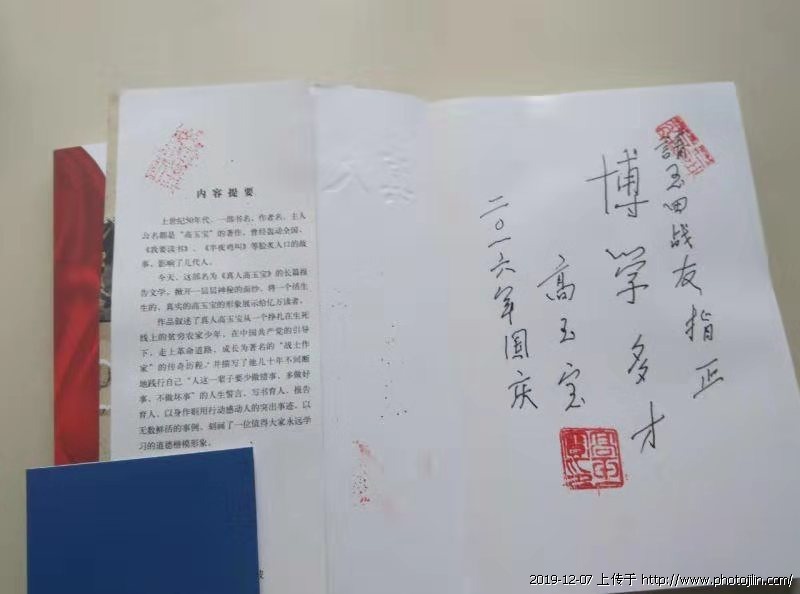 内容提要
上世纪50年代，一部书名、作者名、主人
公名都是“高玉宝”的著作，曾经轰动全国，
《我要读书》、《半夜鸡叫》等脍炙人口的故
事，影响了几代人。
今天，这部名为《真人高玉宝》的长篇报
告文学，掀开一层层神秘的面纱，将一个活生
生的、真实的高玉宝的形象展示给亿万读者。
作品叙述了真人高玉宝从一个挣扎在生死
线上的贫穷农家少年，在中国共产党的引导
下，走上革命道路，成长为著名的“战士作
家”的传奇历程，并描写了他几十年不间断
地践行自己“人这一辈子要少做错事、多做好
事、不做坏事”的人生誓言，写书育人、报告
育人、以身作则用行动感动人的突出事迹，以
无数鲜活的事例，刻画了一位值得大家永远学
习的道德楷模形象。
請玉田战友指正
博学多才
高玉宝
二〇一六年国庆
2019-12-07 上传于 http://www.photojilin.com/